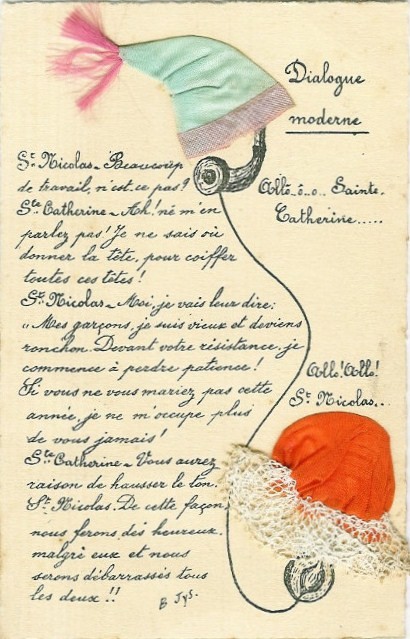 Dialogue
moderne
Allô_ô_o.. Sainte.
Catherine.....
St. Nicolas_ Beaucoup
de travail, n'est-ce pas?
Ste Catherine_ Ah! né m'en
parlez pas! Je ne sais où
donner la tête, pour coiffer
toutes ces têtes!
St. Nicolas_ Moi, je vais leur dire:
"Mes garçons, je suis vieux et deviens
ronchon. Devant votre résistance, je
commence à perdre patience!
Si vous ne vous mariez pas cette
année, je ne m'occupe plus
de vous jamais!
Allô! Allô!
St Nicolas...
Ste Catherine_ Vous aurez
raison de hausser le ton.
St. Nicolas. De cette façon,
nous ferons des heureux.
malgré eux et nous
serons débarrassés tous
les deux!!
B Jys.